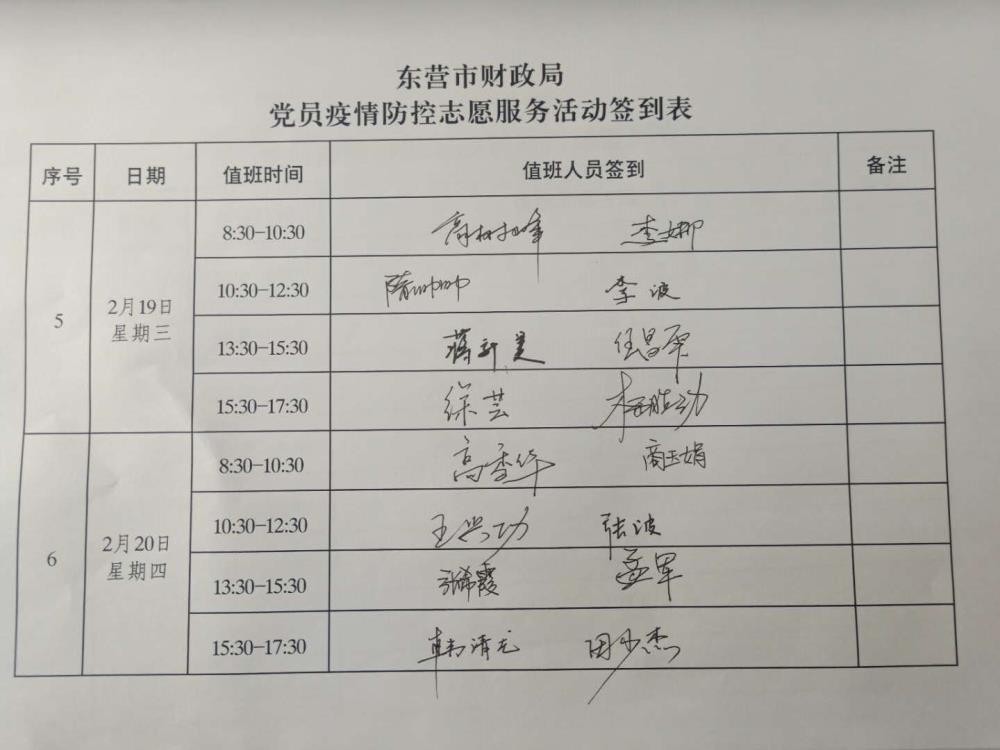 东营市财政局
党员疫情防控志愿服务活动签到表
序号 日期 值班时间 值班人员签到 备注
5 2月19日 星期三
8:30-10:30 李娜
10:30-12:30 隋帅帅 李波
13:30-15:30 蒋新昊 任昌军
15:30-17:30 徐芸
6 2月20日 星期四
8:30-10:30 高秀华 商玉娟
10:30-12:30 王兴功 张波
13:30-15:30 张希霞 孟军
15:30-17:30 韩清龙 田少杰